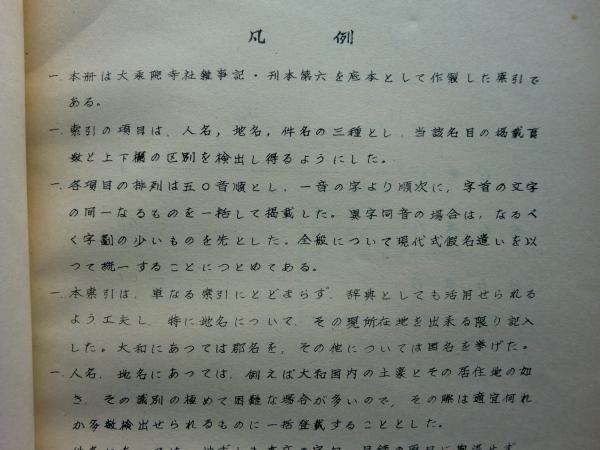 凡例
一.本册は大乘院寺社雜事記・刊本第六を底本として作製した索引で
ある。
一.索引の項目は、人名，地名，件名の三種とし、当該名目の掲載頁
数と上下欄の区別を検出し得るようにした。
一.各項目の排列は五〇音順とし、一音の字より順次に，字首の文字
の同一なるものを一括して掲載した。異字同音の場合は，なるべ
く字劃の少いものを先とした。全般について現代式假名遣いを以
つて統一することにつとめてある。
一.本索引は、単なる索引にとどまらず、辞典としても活用せられる
よう工夫し、特に地名について、その現所在地を出来る限り記入
した。大和にあつては郡名を，その他については国名を挙げた。
一.人名、地名にあつては、例えば大和国内の土豪とその居住地の如
き、その識別の極めて困難な場合が多いので、その際は適宜何れ
か多数検出せられるものに一括登載することとした。